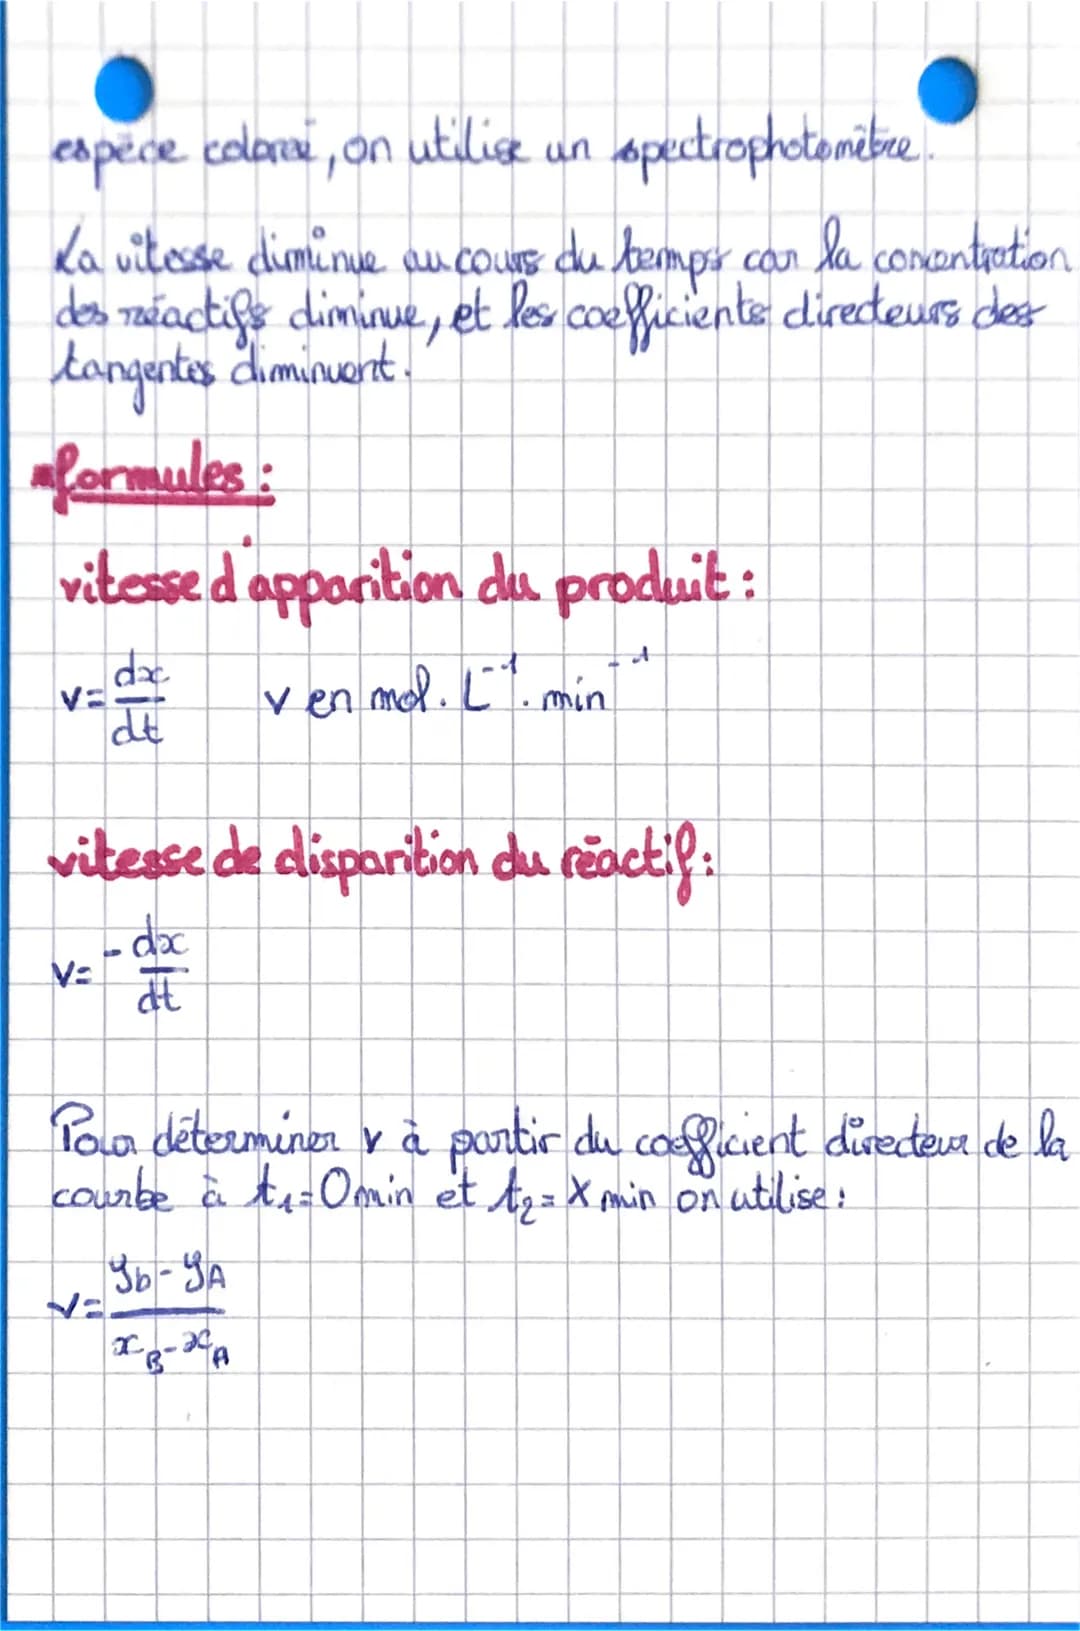 espèce coloreé, on utilise un spectrophotomètre.
La vitesse diminue au cours du temps car la concentration
des réactifs diminue, et les coefficients directeurs des
tangentes diminuent.
formules :
vitesse d'apparition du produit :
v = dx/dt v en mol. L⁻¹. min⁻¹
vitesse de disparition du réactif :
v = -dx/dt
Pour déterminer v à partir du coefficient directeur de la
courbe à t₁ = 0 min et t₂ = X min on utilise :
v = (yb - yA)/(xB - xA)